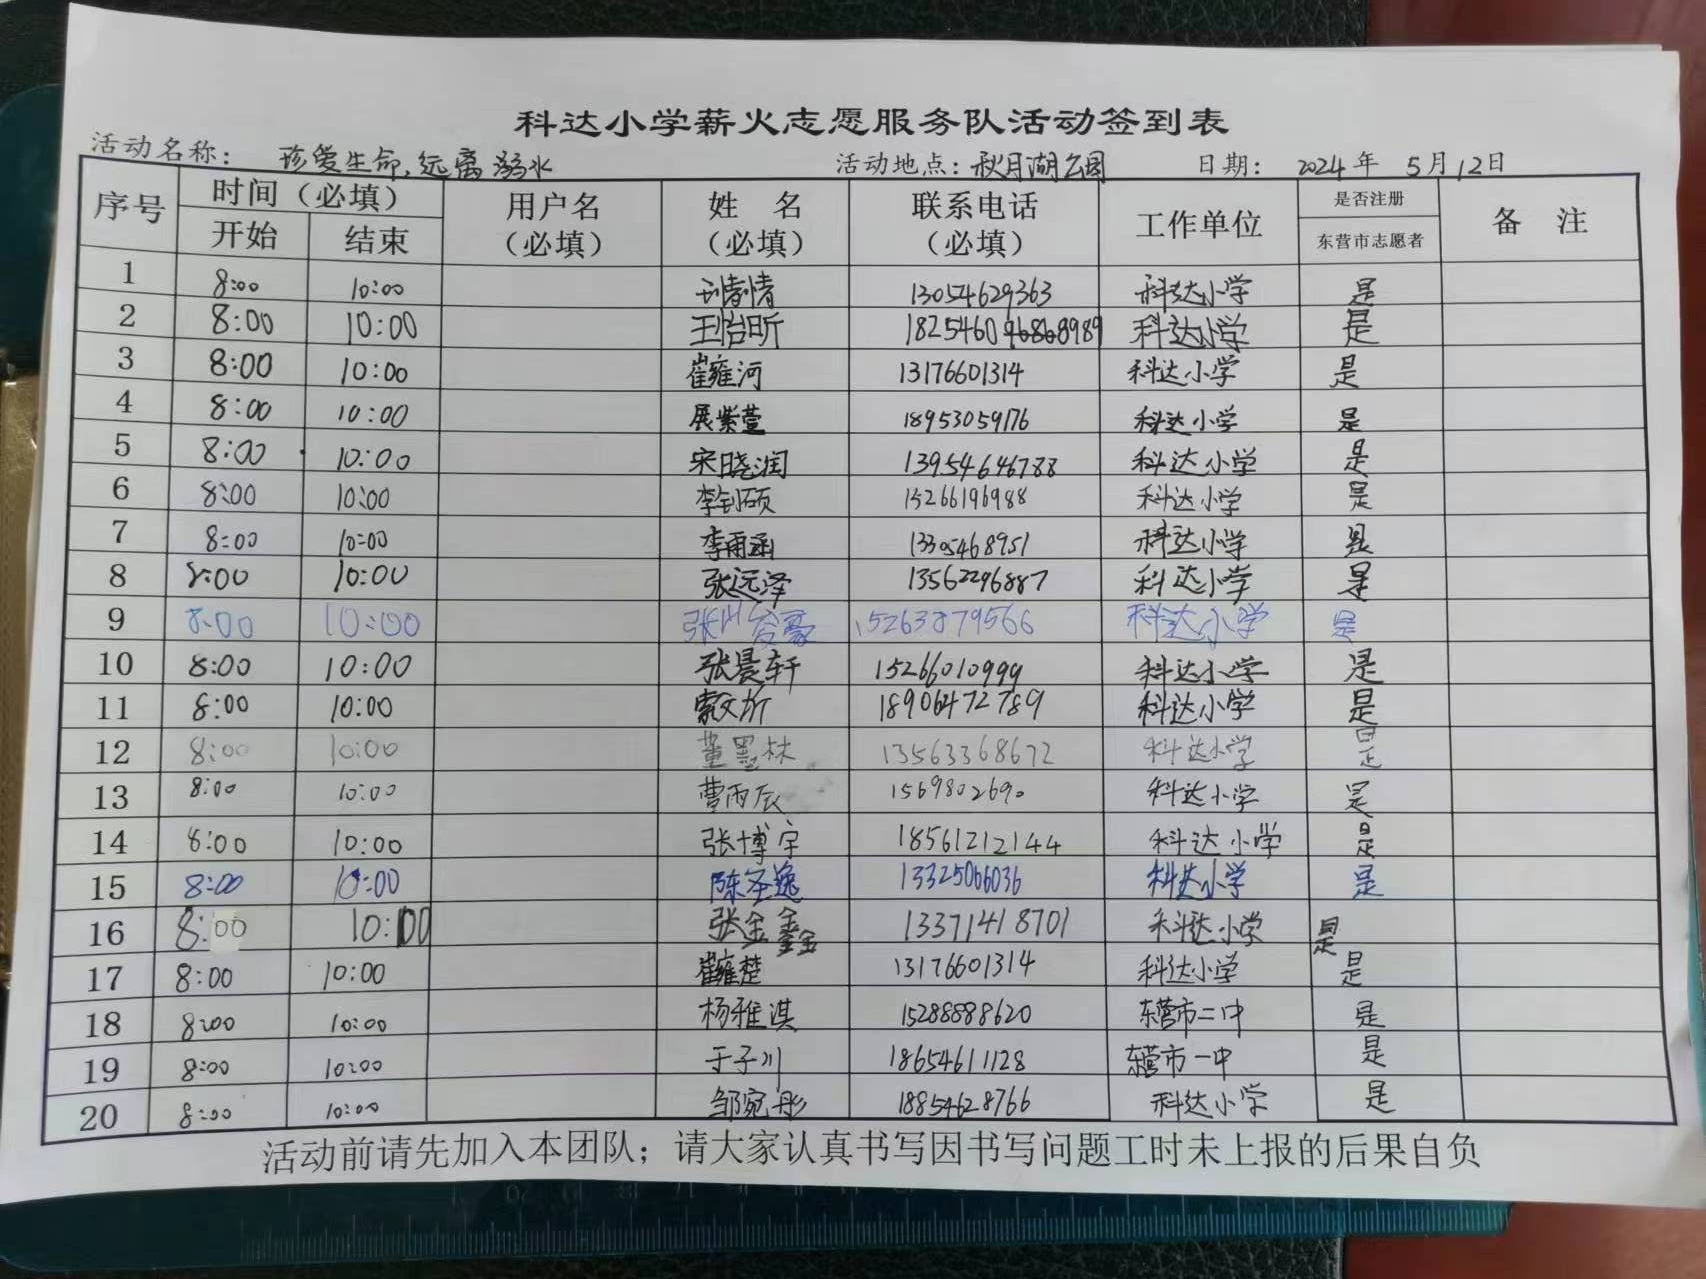 科达小学薪火志愿服务队活动签到表
活动名称： 珍爱生命,远离溺水 活动地点：秋月湖公园 日期： 2024年 5月12日
序号 时间（必填） 用户名（必填） 姓 名（必填） 联系电话（必填） 工作单位 是否注册 备 注
开始 结束 东营市志愿者
1 8:00 10:00 13054629363 科达小学 是
2 8:00 10:00 王怡昕 1825460 8989 科达小学 是
3 8:00 10:00 崔雍河 13176601314 科达小学 是
4 8:00 10:00 展紫萱 18953059176 科达小学 是
5 8:00 10:00 宋晓润 13954646788 科达小学 是
6 8:00 10:00 李钊硕 15266196988 科达小学 是
7 8:00 10:00 李雨涵 13305468951 科达小学 是
8 8:00 10:00 张远泽 13562296887 科达小学 是
9 8:00 10:00 15263879566 科达小学 是
10 8:00 10:00 张晨轩 15266010999 科达小学 是
11 8:00 10:00 18906472789 科达小学 是
12 8:00 10:00 董墨林 13563368672 科达小学 是
13 8:00 10:00 曹雨辰 1569802690 科达小学 是
14 8:00 10:00 张博宇 18561212144 科达小学 是
15 8:00 10:00 陈圣逸 13325066036 科达小学 是
16 8:00 10:00 张金鑫 13371418701 科达小学 是
17 8:00 10:00 崔雍楚 13176601314 科达小学 是
18 8:00 10:00 杨雅淇 15288888620 东营市二中 是
19 8:00 10:00 于子川 18654611128 东营市一中 是
20 8:00 10:00 邹宛彤 18854628766 科达小学 是
活动前请先加入本团队；请大家认真书写因书写问题工时未上报的后果自负